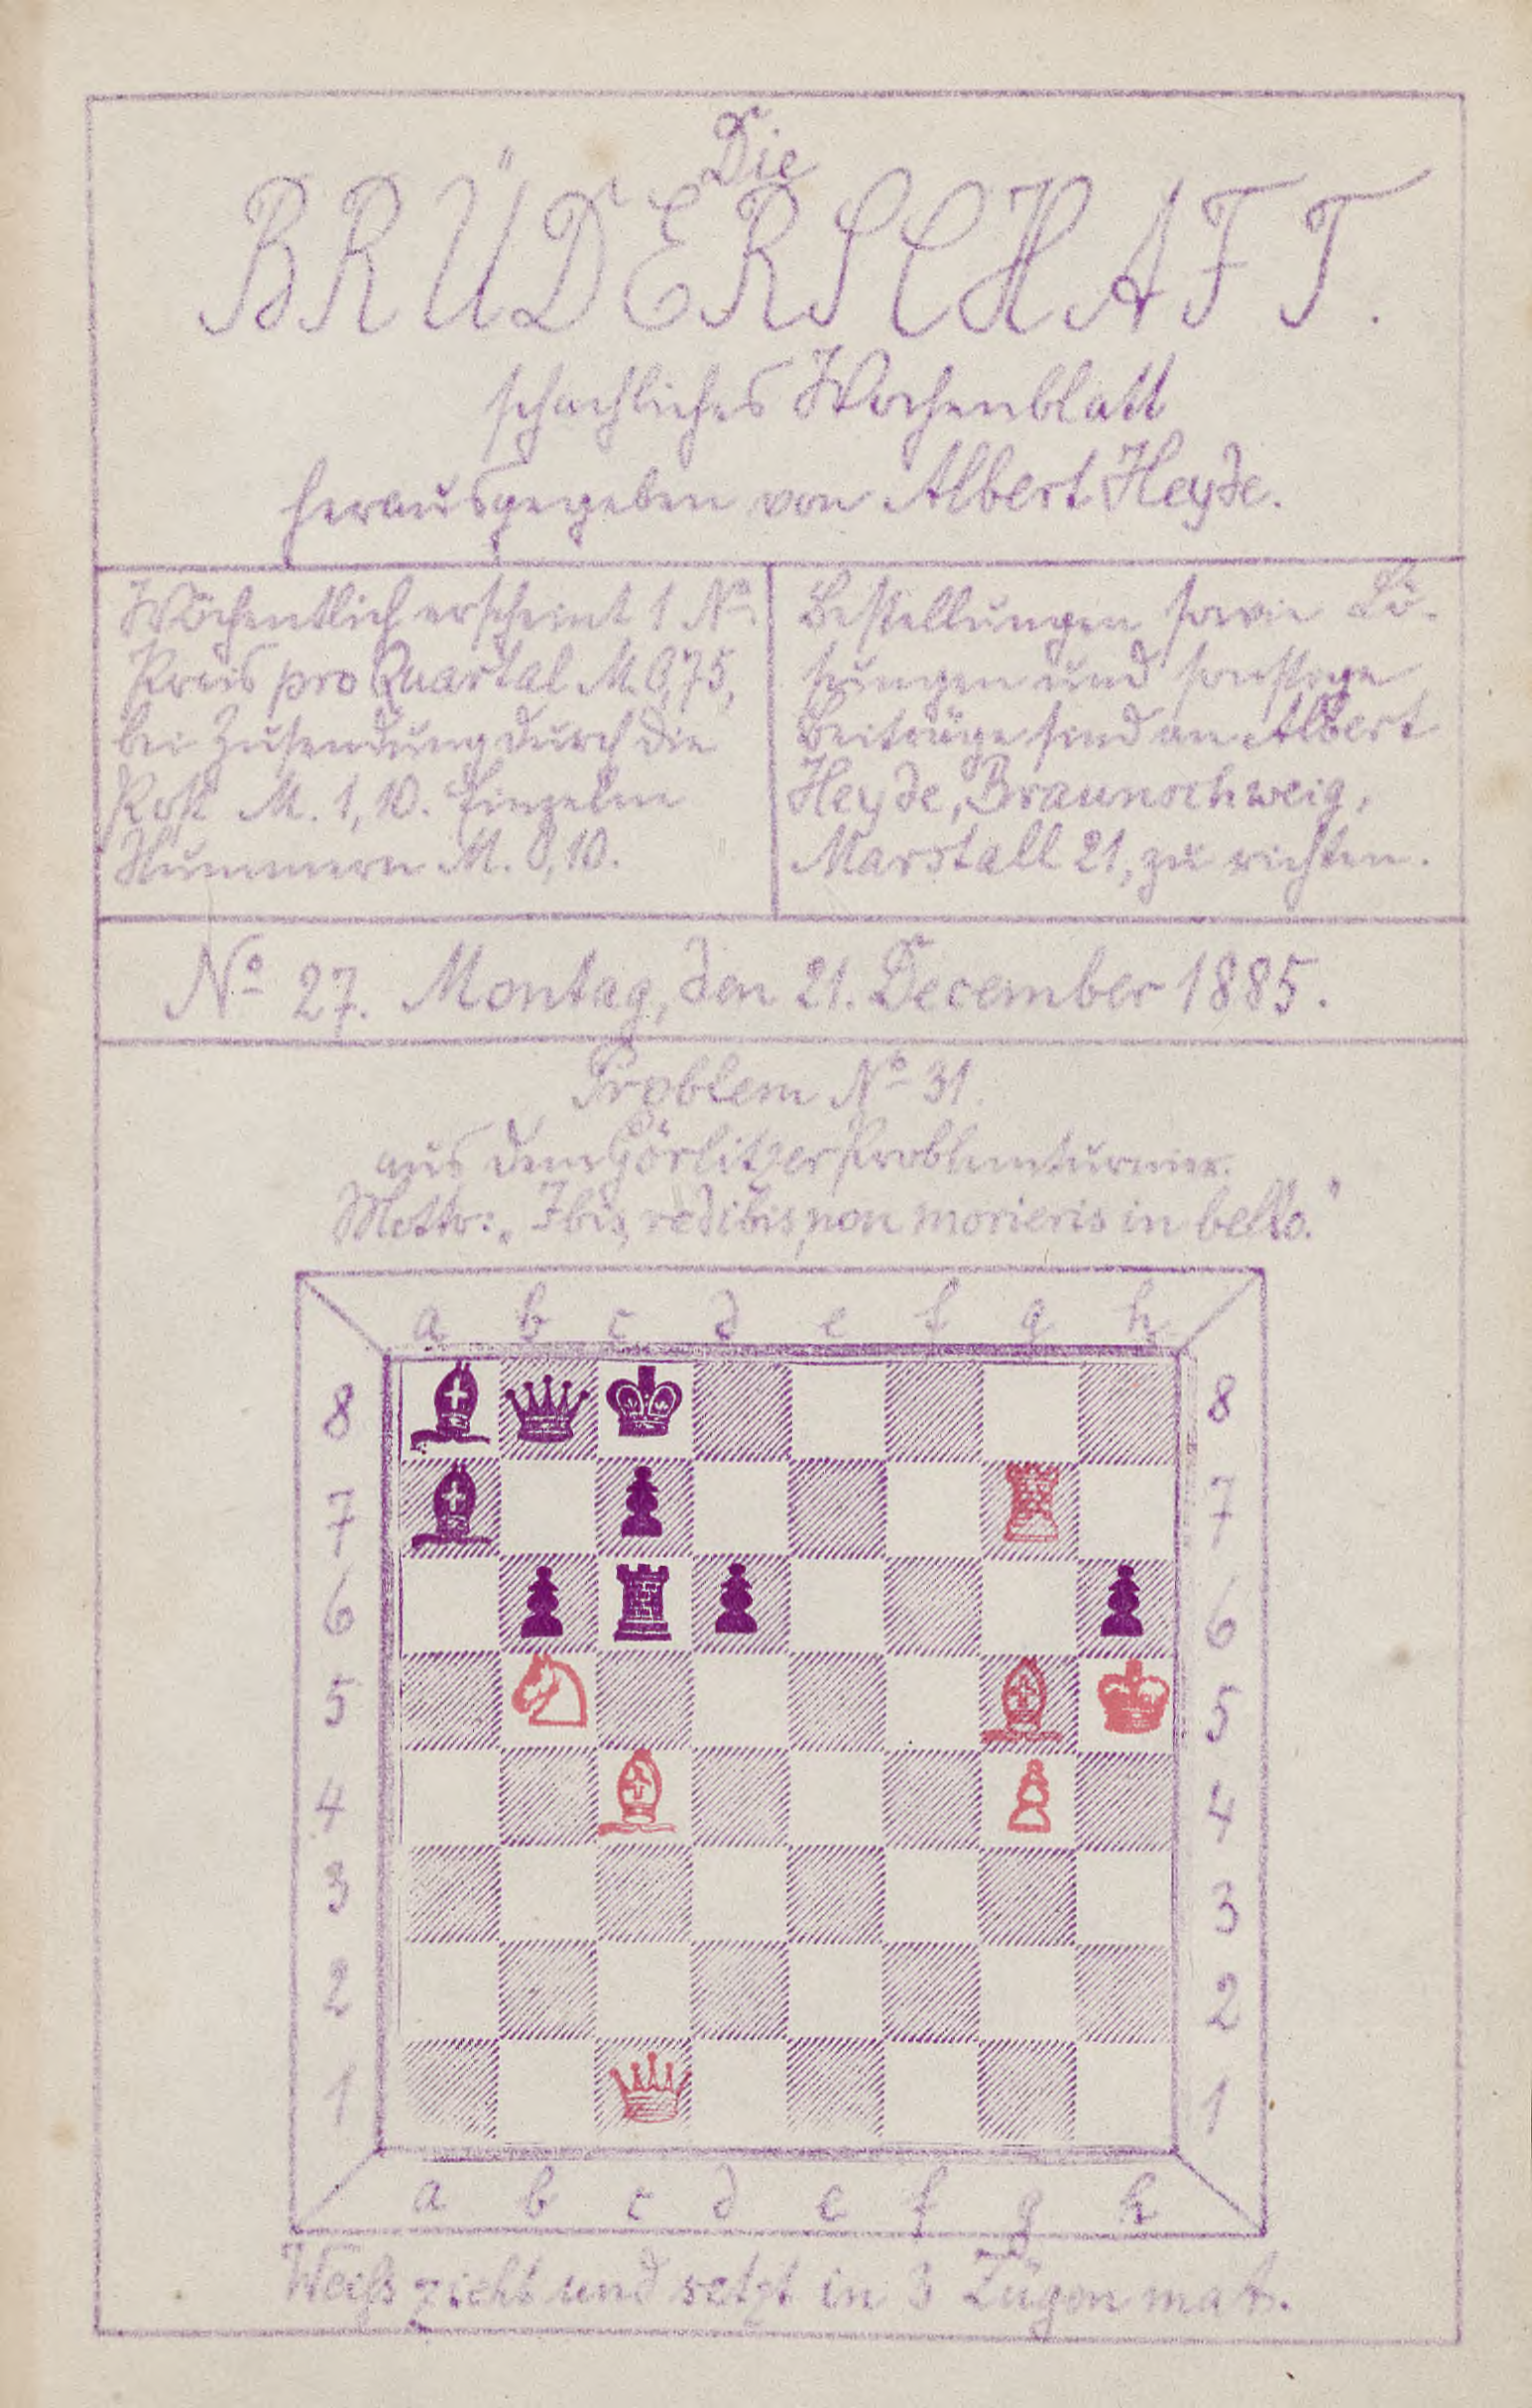 Die
BRÜDERSCHAFT.
schachliches Wochenblatt
herausgegeben von Albert Heyde.
Wöchentlich erscheint 1 No.
Preis pro Quartal M. 0,75,
bei Zusendung durch die
Post M. 1,10. Einzelne
Nummern M. 0,10.
Bestellungen sowie Lö-
sungen und sonstige
Beiträge sind an Albert
Heyde, Braunschweig,
Marstall 21, zu richten.
No 27. Montag, den 21. December 1885.
Problem No 31.
aus dem Görlitzer Problemturnier.
Motto: „Ibis, redibis, non morieris in bello."
a b c d e f g h
8 8
7 7
6 6
5 5
4 4
3 3
2 2
1 1
a b c d e f g h
Weiß zieht und setzt in 3 Zügen mat.